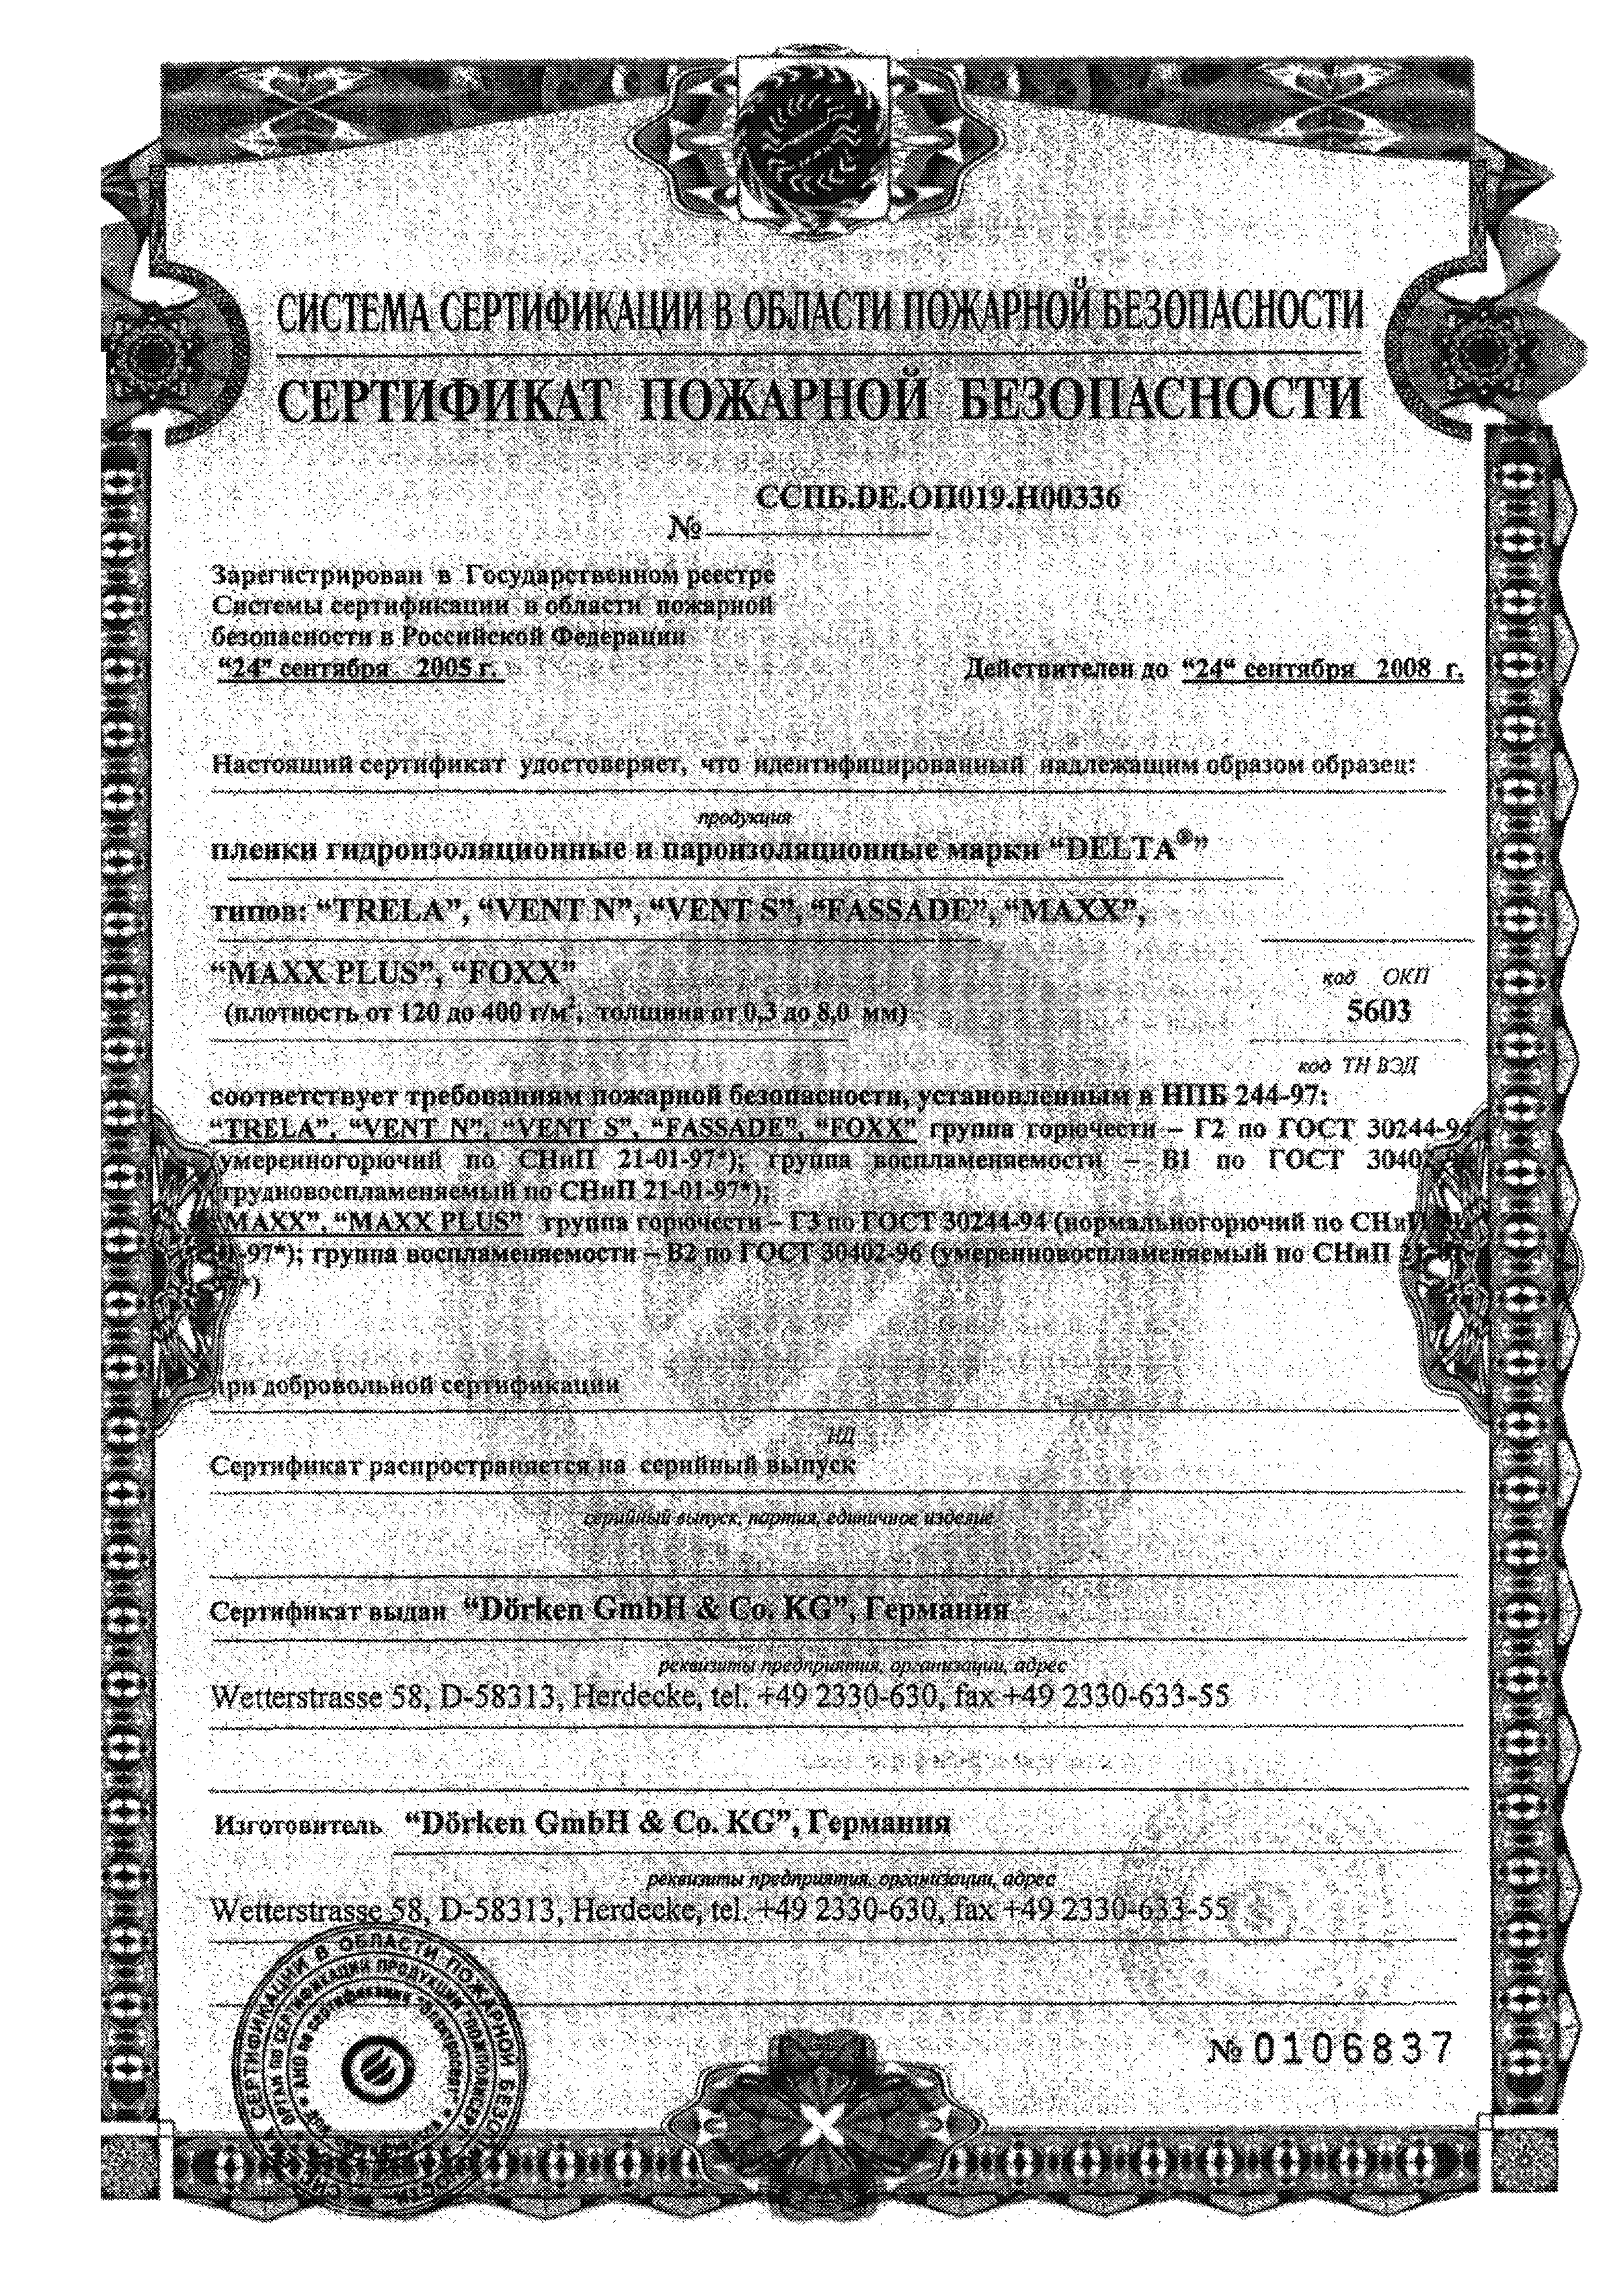 СИСТЕМА СЕРТИФИКАЦИИ В ОБЛАСТИ ПОЖАРНОЙ БЕЗОПАСНОСТИ
СЕРТИФИКАТ ПОЖАРНОЙ БЕЗОПАСНОСТИ
ССПБ.DE.ОП019.Н00336
№
Зарегистрирован в Государственном реестре
Системы сертификации в области пожарной
безопасности в Российской Федерации
“24” сентября 2005 г. Действителен до “24“ сентября 2008 г.
Настоящий сертификат удостоверяет, что идентифицированный надлежащим образом образец:
продукция
пленки гидроизоляционные и пароизоляционные марки “DELTA®”
типов: “TRELA”, “VENT N”, “VENT S”, “FASSADE”, “MAXX”,
“MAXX PLUS”, “FOXX”
код ОКП
(плотность от 120 до 400 г/м², толщина от 0,3 до 8,0 мм) 5603
код ТН ВЭД
соответствует требованиям пожарной безопасности, установленным в НПБ 244-97:
“TRELA”, “VENT N”, “VENT S”, “FASSADE”, “FOXX” группа горючести – Г2 по ГОСТ 30244-94
(умеренногорючий по СНиП 21-01-97*); группа воспламеняемости – В1 по ГОСТ 30402-96
(трудновоспламеняемый по СНиП 21-01-97*);
“MAXX”, “MAXX PLUS” группа горючести – Г3 по ГОСТ 30244-94 (нормальногорючий по СНиП 21-
01-97*); группа воспламеняемости – В2 по ГОСТ 30402-96 (умеренновоспламеняемый по СНиП 21-01-
*)
при добровольной сертификации
НД
Сертификат распространяется на серийный выпуск
серийный выпуск, партия, единичное изделие
Сертификат выдан “Dörken GmbH & Co. KG”, Германия
реквизиты предприятия, организации, адрес
Wetterstrasse 58, D-58313, Herdecke, tel. +49 2330-630, fax +49 2330-633-55
Изготовитель “Dörken GmbH & Co. KG”, Германия
реквизиты предприятия, организации, адрес
Wetterstrasse 58, D-58313, Herdecke, tel. +49 2330-630, fax +49 2330-633-55
СЕРТИФИКАЦИИ В ОБЛАСТИ ПОЖАРНОЙ
ОРГАН ПО СЕРТИФИКАЦИИ ПРОДУКЦИИ
АНО по сертификации
№ 0106837